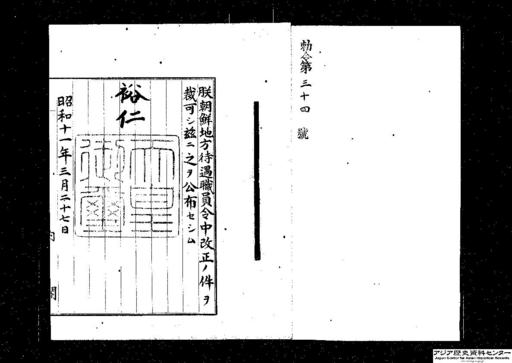 勅令第三十四號
朕朝鮮地方待遇職員令中改正ノ件ヲ
裁可シ茲ニ之ヲ公布セシム
裕仁
昭和十一年三月二十七日
内閣
アジア歴史資料センター
Japan Center for Asian Historical Records